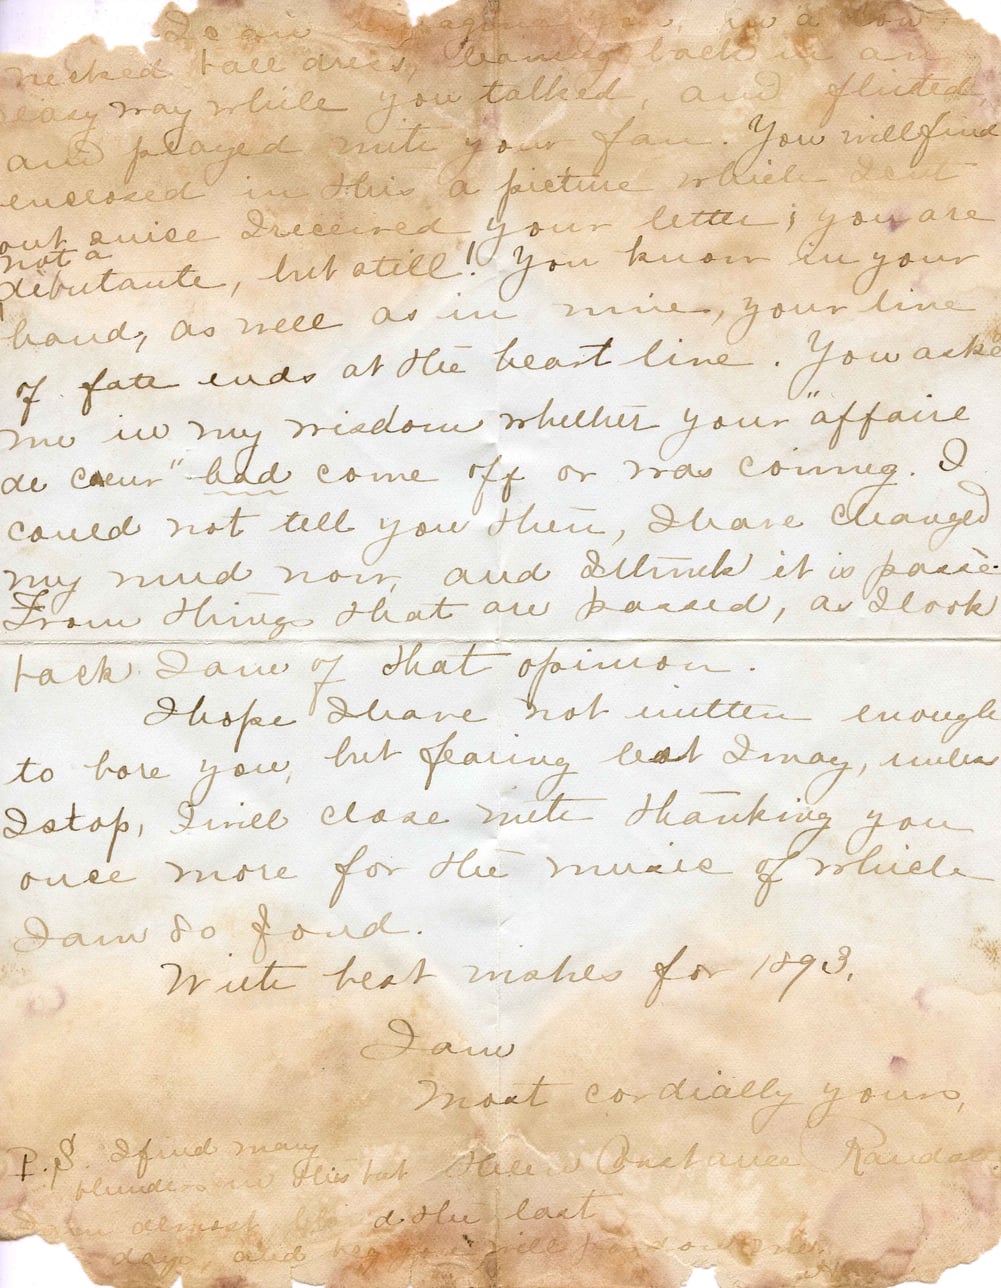 I can imagine you, in a low
necked ball dress, leaning back in an
easy way while you talked, and flirted,
and played with your fan. You will find
enclosed in this a picture which I cut
out since I received your letter; you are
not a
débutante, but still! You know in your
hand, as well as in mine, your line
of fate ends at the heart line. You asked
me in my wisdom whether your "affaire
de cœur" had come off or was coming. I
could not tell you then, I have changed
my mind now, and I think it is passè.
From things that are passed, as I look
back I am of that opinion.
I hope I have not written enough
to bore you, but fearing lest I may, unless
I stop, I will close with thanking you
once more for the music of which
I am so fond.
With best wishes for 1893,
I am
Most cordially yours,
Helen Constance Randall
P.S. I find many
blunders in this but
I am almost
d the last
days, and beg you will pardon me.